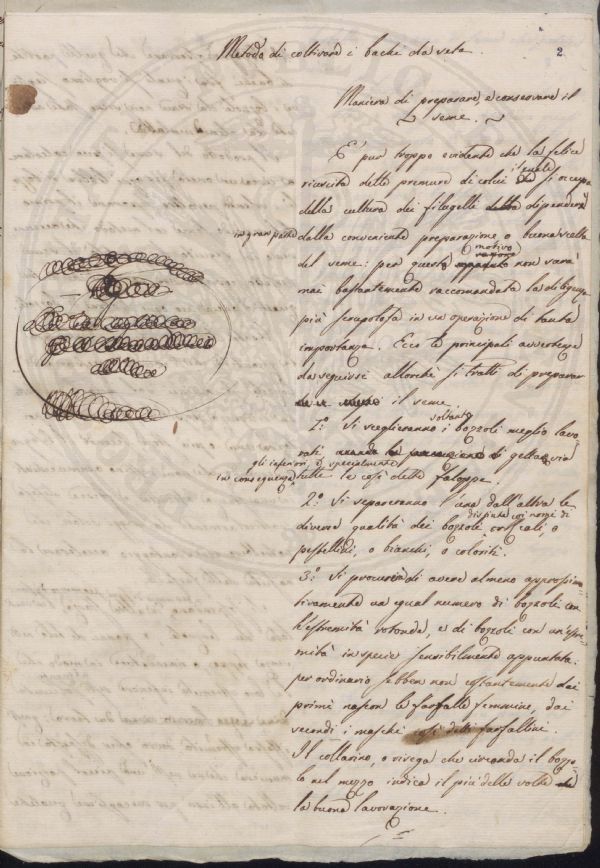 2
Metodo di coltivare i bachi da seta.
Maniera di preparare e conservare il
seme.
E' pur troppo evidente che la felice
il quale
riuscita delle premure di colui si occupa
della cultura dei filugelli dipenderà
in gran parte dalla conveniente preparazione o buona scelta
motivo
del seme: per questo non sarà
mai bastantemente raccomandata la diligenza
più scrupolosa in un operazione di tanta
importanza. Ecco le principali avvertenze
da seguirsi allorchè si tratti di preparar
il seme.
soltanto
1.° Si sceglieranno i bozzoli meglio lavo-
rati gettar via
gli inferiori, e specialmente
in conseguenza tutte le così dette faloppe.
2.° Si separeranno l'una dall'altra le
distinte coi nomi di
diverse qualità dei bozzoli, o
pestellini, o bianchi, o coloriti.
3.° Si procurerà di avere almeno approssima-
tivamente un egual numero di bozzoli con
l'estremità rotonda, e di bozzoli con un'estre-
mità in specie sensibilmente appuntata:
per ordinario sebben non costantemente dai
primi nascon le farfalle femmine, dai
secondi i maschi così detti farfallini.
Il collarino, o rivega che circonda il bozzo-
lo nel mezzo indica il più delle volte
la buona lavorazione.